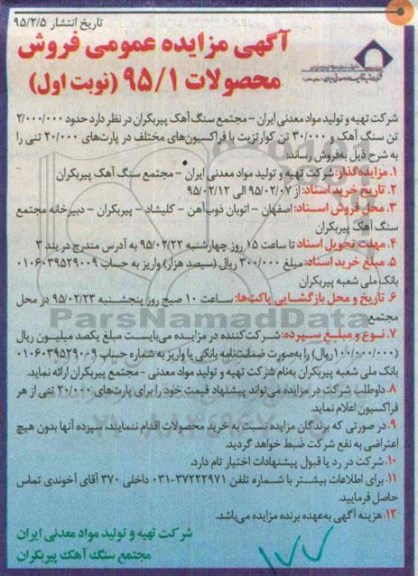 تاریخ انتشار ۹۵/۲/۵
آگهی مزایده عمومی فروش
محصولات ۹۵/۱ (نوبت اول)
شرکت تهیه و تولید مواد معدنی ایران - مجتمع سنگ آهک پیربکران در نظر دارد حدود ۲/۰۰۰/۰۰۰
تن سنگ آهک و ۳۰/۰۰۰ تن کوارتزیت با فراکسیون‌های مختلف در پارت‌های ۲۰/۰۰۰ تنی را
به شرح ذیل به‌فروش رساند:
۱. مزایده گذار: شرکت تهیه و تولید مواد معدنی ایران - مجتمع سنگ آهک پیربکران
۲. تاریخ خرید اسناد: از ۹۵/۰۲/۰۷ الی ۹۵/۰۲/۱۲
۳. محل فروش اسناد: اصفهان - اتوبان ذوب‌آهن - کلیشاد - پیربکران - دبیرخانه مجتمع
سنگ آهک پیربکران
۴. مهلت تحویل اسناد تا ساعت ۱۵ روز چهارشنبه ۹۵/۰۲/۲۲ به آدرس مندرج در بند ۳
۵. مبلغ خرید اسناد: مبلغ ۳۰۰/۰۰۰ ریال (سیصد هزار) واریز به حساب ۰۱۰۶۰۳۹۵۲۹۰۰۹
بانک ملی شعبه پیربکران
۶. تاریخ و محل بازگشایی پاکت‌ها: ساعت ۱۰ صبح روز پنجشنبه ۹۵/۰۲/۲۳ در محل
مجتمع
۷. نوع و مبلغ سپرده: شرکت‌کننده در مزایده می‌بایست مبلغ یکصد میلیون ریال
(۱۰۰/۰۰۰/۰۰۰ ریال) را به‌صورت ضمانت‌نامه بانکی یا واریز به شماره حساب ۰۱۰۶۰۳۹۵۲۹۰۰۹
بانک ملی شعبه پیربکران به‌نام شرکت تهیه و تولید مواد معدنی - مجتمع پیربکران ارائه نماید.
۸. داوطلب شرکت در مزایده می‌تواند پیشنهاد قیمت خود را برای پارت‌های ۲۰/۰۰۰ تنی از هر
فراکسیون اعلام نماید.
۹. در صورتی که برندگان مزایده نسبت به خرید محصولات اقدام ننمایند، سپرده آنها بدون هیچ
اعتراضی به نفع شرکت ضبط خواهد گردید.
۱۰. شرکت در رد یا قبول پیشنهادات اختیار تام دارد.
۱۱. برای اطلاعات بیشتر با شماره تلفن ۳۷۲۲۲۹۷۱-۰۳۱ داخلی ۳۷۰ آقای آخوندی تماس
حاصل فرمایید.
۱۲. هزینه آگهی به‌عهده برنده مزایده می‌باشد.
شرکت تهیه و تولید مواد معدنی ایران
مجتمع سنگ آهک پیربکران
۱۷۷
ParsNamadData